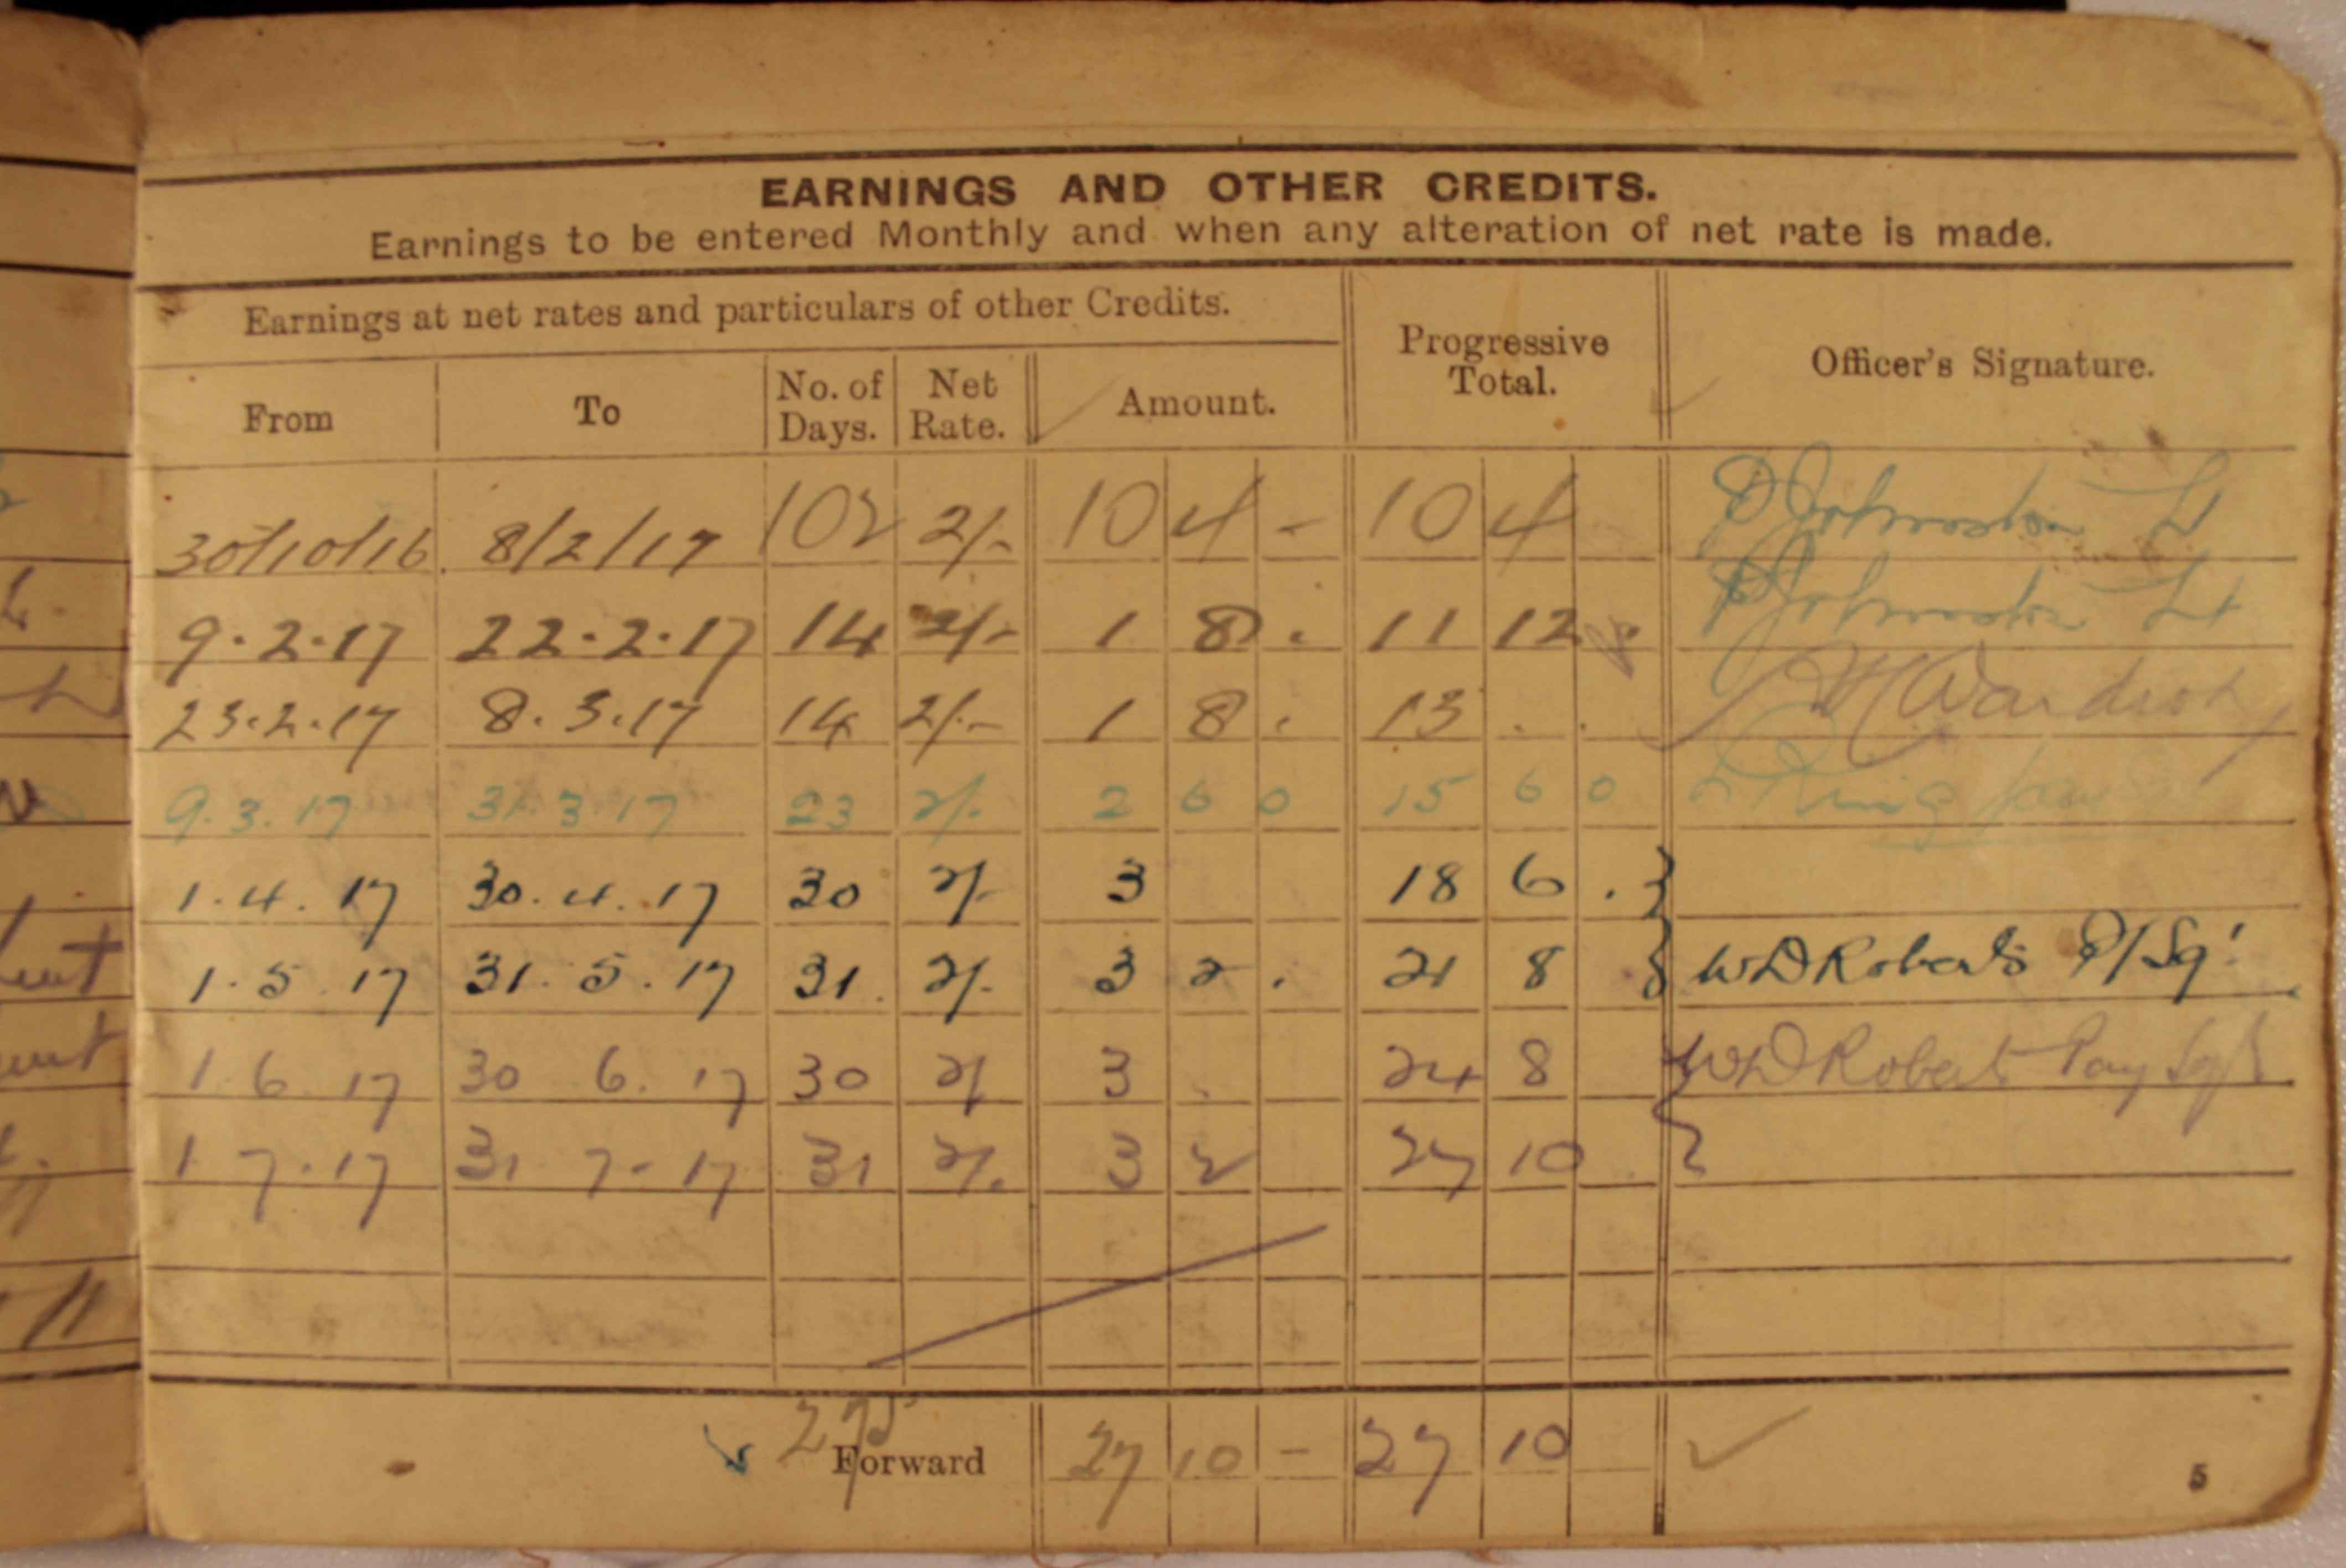 EARNINGS AND OTHER CREDITS.
Earnings to be entered Monthly and when any alteration of net rate is made.
Earnings at net rates and particulars of other Credits.
Progressive Total.
Officer's Signature.
From To No. of Days. Net Rate. Amount.
30/10/16 8/2/17 102 2/- 10 4 - 10 4 Johnston Lt
9.2.17 22.2.17 14 2/- 1 8 . 11 12 . Johnston Lt
23.2.17 8.3.17 14 2/- 1 8 . 13 . .
9.3.17 31.3.17 23 2/- 2 6 0 15 6 0
1.4.17 30.4.17 30 2/- 3 18 6 .
1.5.17 31.5.17 31 2/- 3 2 . 21 8 WD Roberts P/Sgt
1 6 17 30 6. 17 30 2/ 3 . 24 8 WD Roberts Pay Sgt
1 7.17 31 7-17 31 2/- 3 2 27 10
275
Forward 27 10 - 27 10
5